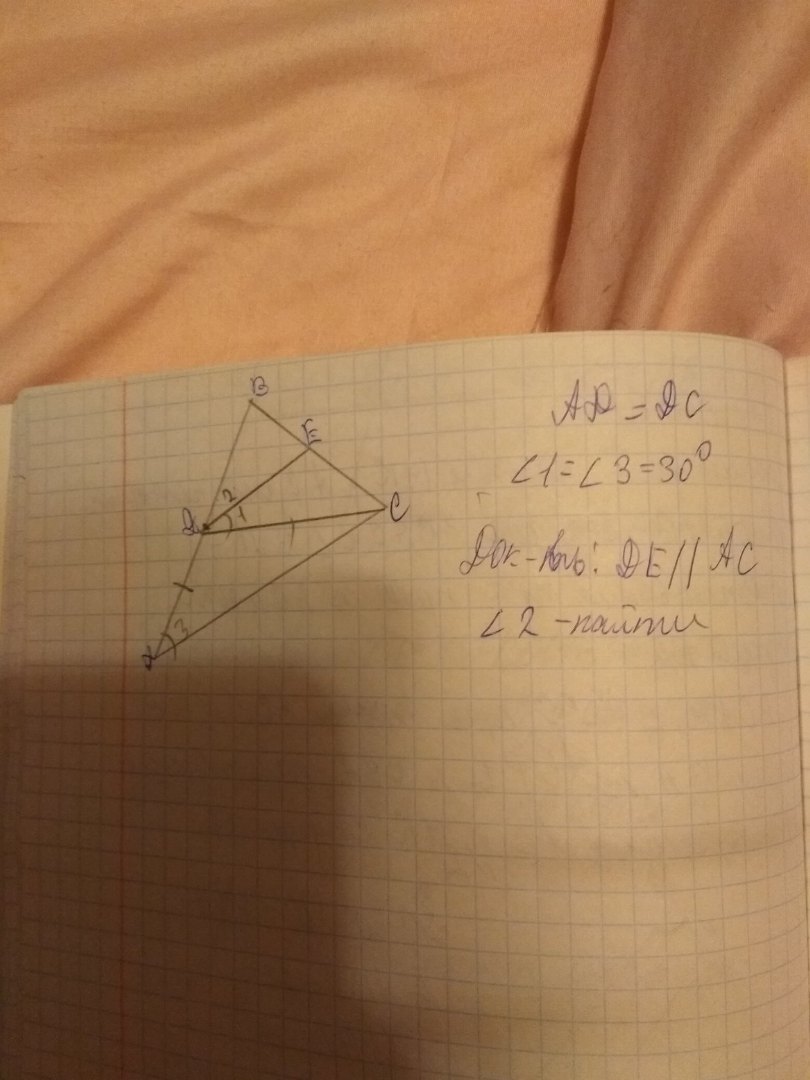 B
E
2
D 1
C
3
A
AD = DC
∠1 = ∠3 = 30°
Док-ть: DE // AC
∠2 - найти